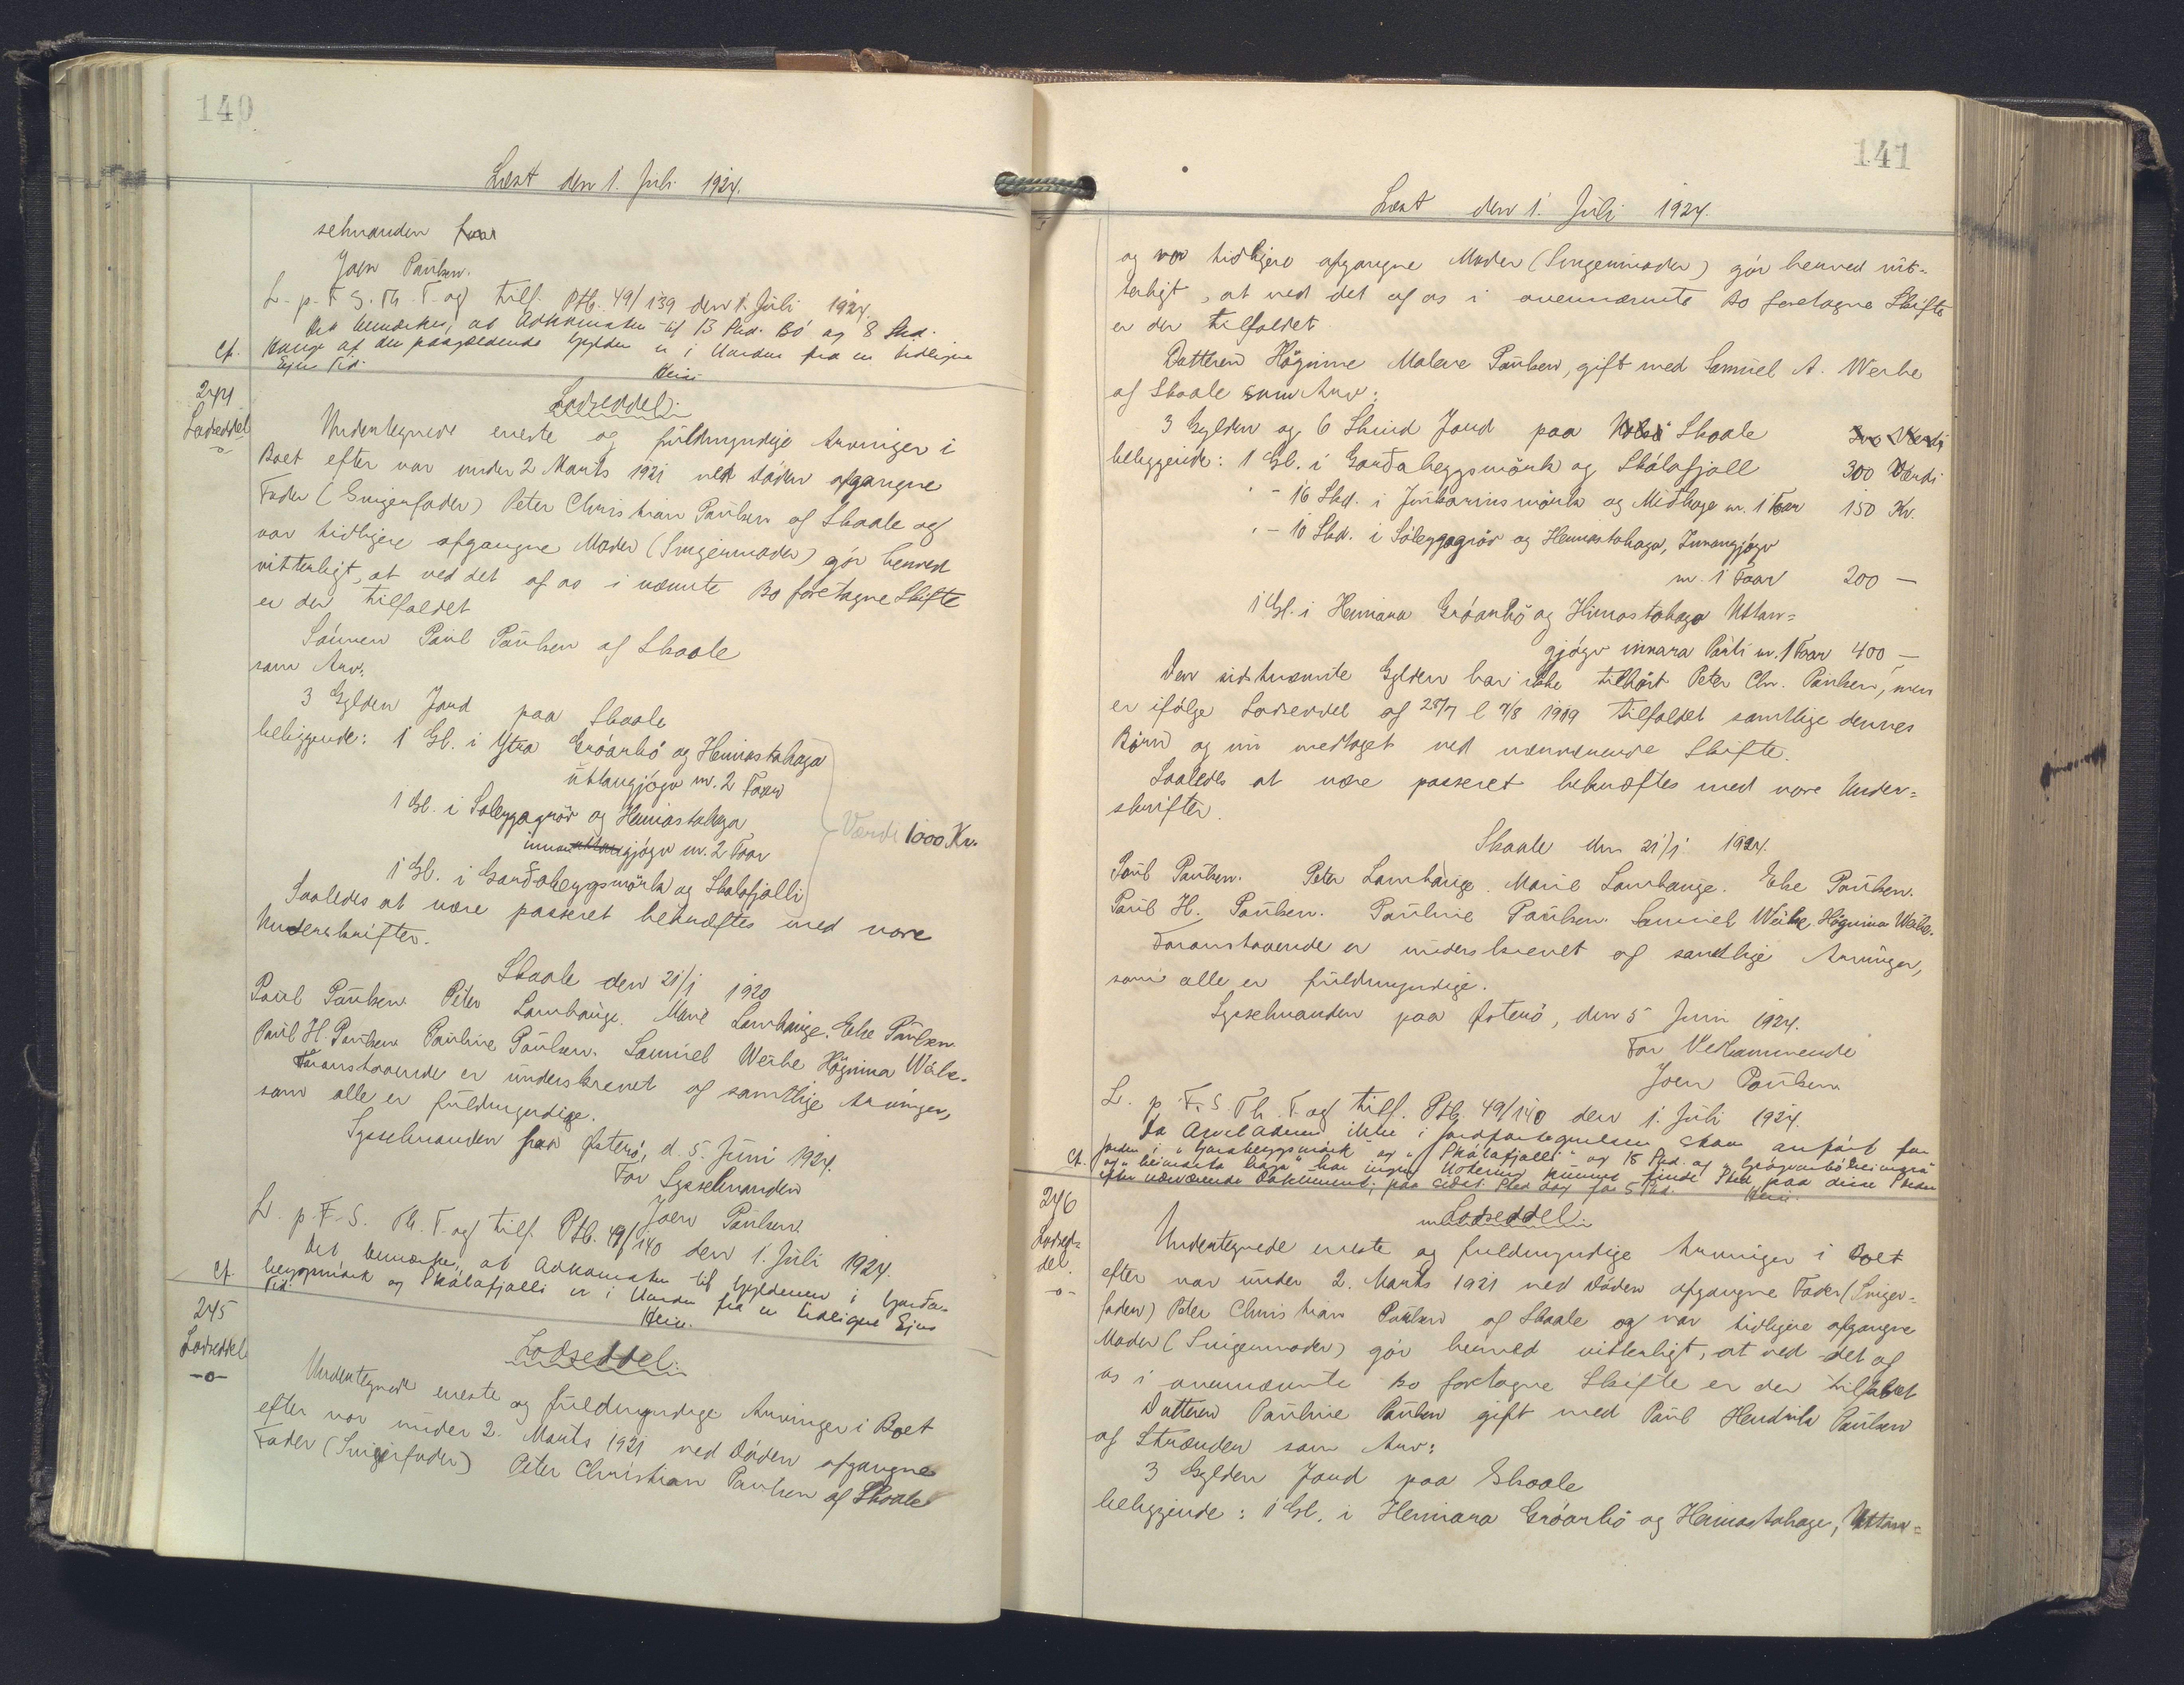 140
Læst den 1. Juli 1924.
selmanden
Joen Paulsen.
L. p. F. S. Th. F. og tilf. Ptb. 49/139 den 1. Juli 1924.
Det bemærkes, at Adkomsten til 13 Skd. Bø og 8 Skd.
Hauge af den paagældende Gylden er i Uorden fra en tidligere
Ejers Tid.
Cf.
244
Lodseddel
-o-
Lodseddel.
Undertegnede eneste og fuldmyndige Arvinger i
Boet efter vor under 2 Marts 1921 ved Døden afgangne
Fader (Svigerfader) Peter Christian Paulsen af Skaale og
vor tidligere afgangne Moder (Svigermoder) gør herved
vitterligt, at ved det af os i nævnte Bo foretagne Skifte
er der tilfaldet
Sønnen Paul Paulsen af Skaale
som Arv:
3 Gylden Jord paa Skaale
beliggende: 1 Gl. i Ytra Gróarbö og Heimastahaga
úttangjógv m. 2 Faar
1 Gl. i Soleygagröv og Heimastahaga
innangjógv m. 2 Faar
1 Gl. i Garðaheygsmörk og Skalafjalli
Værdi 1000 Kr.
Saaledes at være passeret bekræftes med vore
Underskrifter.
Skaale den 21/1 1920
Paul Paulsen. Peter Lamhauge. Marie Lamhauge. Else Paulsen.
Paul H. Paulsen. Pauline Paulsen. Samuel Weihe Högnina Weihe.
Foranstaaende er underskrevet af samtlige Arvinger,
som alle er fuldmyndige.
Sysselmanden paa Østerø, d. 5. Juni 1924.
For Sysselmanden
Joen Paulsen.
L. p. F. S. Th. F. og tilf. Ptb. 49/140 den 1. Juli 1924.
Det bemærkes, at Adkomsten til Gyldenen i Garða-
heygsmörk og Skálafjalli er i Uorden fra en tidligere Ejers
Tid.
Cf.
245
Lodseddel
-o-
Lodseddel.
Undertegnede eneste og fuldmyndige Arvinger i Boet
efter vor under 2. Marts 1921 ved Døden afgangne
Fader (Svigerfader) Peter Christian Paulsen af Skaale
141
Læst den 1. Juli 1924.
og vor tidligere afgangne Moder (Svigermoder) gør herved vit-
terligt, at ved det af os i ovennævnte Bo foretagne Skifte
er der tilfaldet
Datteren Högnine Malene Paulsen, gift med Samuel A. Weihe
af Skaale som Arv:
3 Gylden og 6 Skind Jord paa Skaale
beliggende: 1 Gl. i Garðaheygsmörk og Skálafjall 300 Værdi
" - 16 Skd. i og Miðhage m. 1 Faar 150 Kr.
" - 10 Skd. i Sóleygagröv og Heimastahaga, Innangjógv
m. 1 Faar 200 —
1 Gl. i Heimara Gróarbö og Himastahaga Uttan-
gjógv innara Parti m. 1 Faar 400 —
Den sidstnævnte Gylden har ikke tilhørt Peter Chr. Paulsen, men
er ifølge Lodseddel af 28/7 l 7/8 1919 tilfaldet samtlige dennes
Børn og nu medtaget ved nærværende Skifte.
Saaledes at være passeret bekræftes med vore Under-
skrifter.
Skaale den 21/1 1924.
Paul Paulsen. Peter Lamhauge. Marie Lamhauge. Else Paulsen.
Paul H. Paulsen. Pauline Paulsen. Samuel Weihe, Högnina Weihe.
Foranstaaende er underskrevet af samtlige Arvinger,
som alle er fuldmyndige.
Sysselmanden paa Østerø, den 5 Juni 1924.
For Vedkommende
Joen Paulsen
L. p. F. S. Th. F. og tilf. Ptb. 49/140 den 1. Juli 1924.
Da Arveladeren ikke i Jordfortegnelsen staar anført for
Jorden i "Garðaheygsmörk" og "Skálafjalli" og 15 Skd. af "Gróarbö heimara
og "heimasta haga" har ingen Notering kunnet finde Sted paa disse Steder
efter nærværende Dokument, paa sidst Sted dog for 5 Skd.
Cf.
246
Lodsed-
del.
-o-
Lodseddel.
Undertegnede eneste og fuldmyndige Arvinger i Boet
efter vor under 2. Marts 1921 ved Døden afgangne Fader (Sviger-
fader) Peter Christian Paulsen af Skaale og vor tidligere afgangne
Moder (Svigermoder) gør herved vitterligt, at ved det af
os i ovennævnte Bo foretagne Skifte er der tilfaldet
Datteren Pauline Paulsen gift med Paul Hendrik Paulsen
af Strænder som Arv:
3 Gylden Jord paa Skaale
beliggende: 1 Gl. i Heimara Gróarbö og Heimastahage, Uttan-